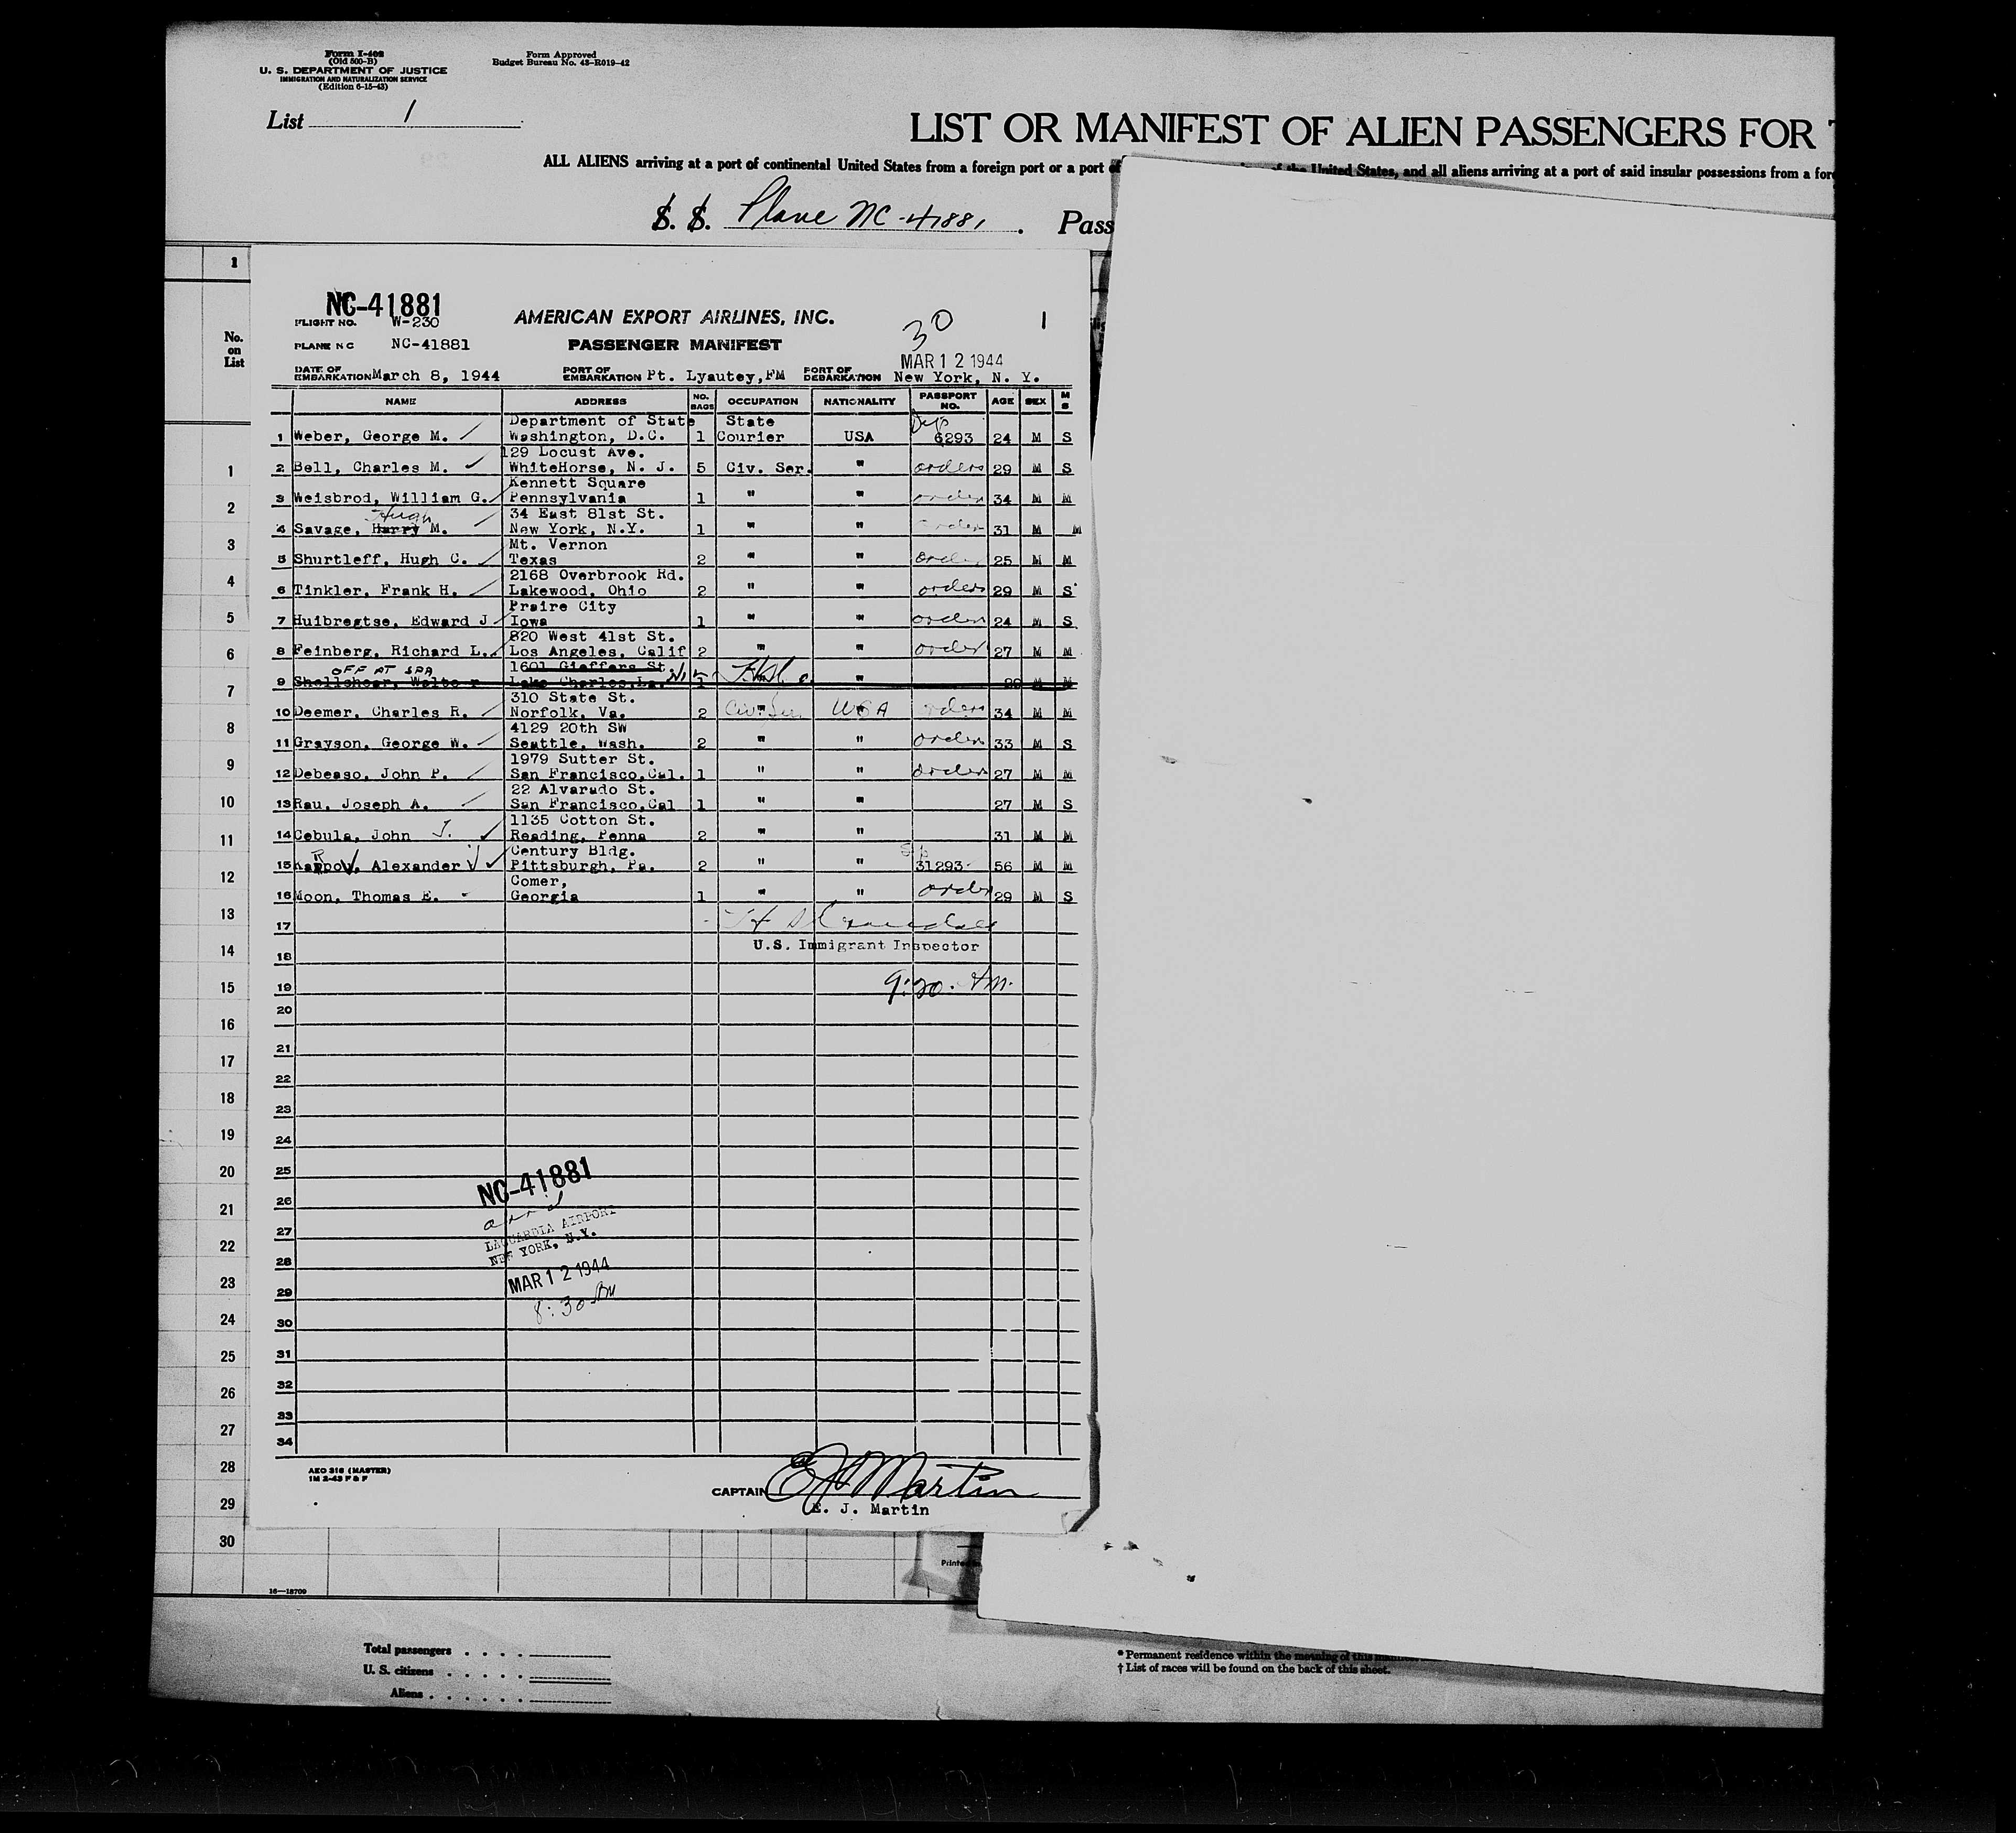 Form I-402
(Old 500-B)
U. S. DEPARTMENT OF JUSTICE
IMMIGRATION AND NATURALIZATION SERVICE
(Edition 6-15-43)
Form Approved
Budget Bureau No. 43-R019-42
List 1
LIST OR MANIFEST OF ALIEN PASSENGERS FOR
ALL ALIENS arriving at a port of continental United States from a foreign port or a port of the United States, and all aliens arriving at a port of said insular possessions from a for
S. S. Plane NC-41881. Pass
1
No.
on
List
NC-41881
FLIGHT NO. W-230
AMERICAN EXPORT AIRLINES, INC.
30
1
PLANE NC NC-41881
PASSENGER MANIFEST
MAR 12 1944
DATE OF EMBARKATION March 8, 1944 PORT OF EMBARKATION Pt. Lyautey, FM PORT OF DEBARKATION New York, N. Y.
NAME ADDRESS NO. BAGS OCCUPATION NATIONALITY PASSPORT NO. AGE SEX M S
Department of State State Dip
1 Weber, George M. Washington, D.C. 1 Courier USA 6293 24 M S
129 Locust Ave.
2 Bell, Charles M. WhiteHorse, N. J. 5 Civ. Ser. " orders 29 M S
Kennett Square
3 Weisbrod, William G. Pennsylvania 1 " " order 34 M M
Hugh 34 East 81st St.
4 Savage, Harry M. New York, N.Y. 1 " " order 31 M M
Mt. Vernon
5 Shurtleff, Hugh C. Texas 2 " " order 25 M M
2168 Overbrook Rd.
6 Tinkler, Frank H. Lakewood, Ohio 2 " " orders 29 M S
Praire City
7 Huibregtse, Edward J Iowa 1 " " orders 24 M S
820 West 41st St.
8 Feinberg, Richard L. Los Angeles, Calif 2 " " order 27 M M
OFF AT SPA 1601 Gieffers St.
9 Shellshear, Walter Lake Charles, La. 1 " M M
310 State St.
10 Deemer, Charles R. Norfolk, Va. 2 Civ. Ser. USA orders 34 M M
4129 20th SW
11 Grayson, George W. Seattle, Wash. 2 " " orders 33 M S
1979 Sutter St.
12 Debeaso, John P. San Francisco,Cal. 1 " " orders 27 M M
22 Alvarado St.
13 Rau, Joseph A. San Francisco,Cal 1 " " 27 M S
1135 Cotton St.
14 Cebula, John J. Reading, Penna 2 " " 31 M M
Century Bldg.
15 Kappov, Alexander Pittsburgh, Pa. 2 " " 31293 56 M M
Comer,
16 Moon, Thomas E. Georgia 1 " " order 29 M S
17
U.S. Immigrant Inspector
18
19 9:30 AM.
20
21
22
23
24
25
NC-41881
26
arr'd
27
LAGUARDIA AIRPORT
NEW YORK, N.Y.
28
MAR 12 1944
29
8:30 AM
30
31
32
33
34
AEO 316 (MASTER)
1M 2-43 P & F
CAPTAIN E J Martin
E. J. Martin
1
2
3
4
5
6
7
8
9
10
11
12
13
14
15
16
17
18
19
20
21
22
23
24
25
26
27
28
29
30
Printed
16—18709
Total passengers
U. S. citizens
Aliens
* Permanent residence within the meaning of this
† List of races will be found on the back of this sheet.